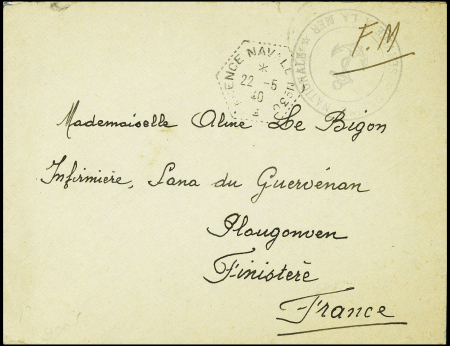 F.M
AGENCE NAVALE
22 -5
40
NATIONALE
LA MER
Mademoiselle Aline Le Bigon
Infirmière, Sana du Guervénan
Plougonven
Finistère
France